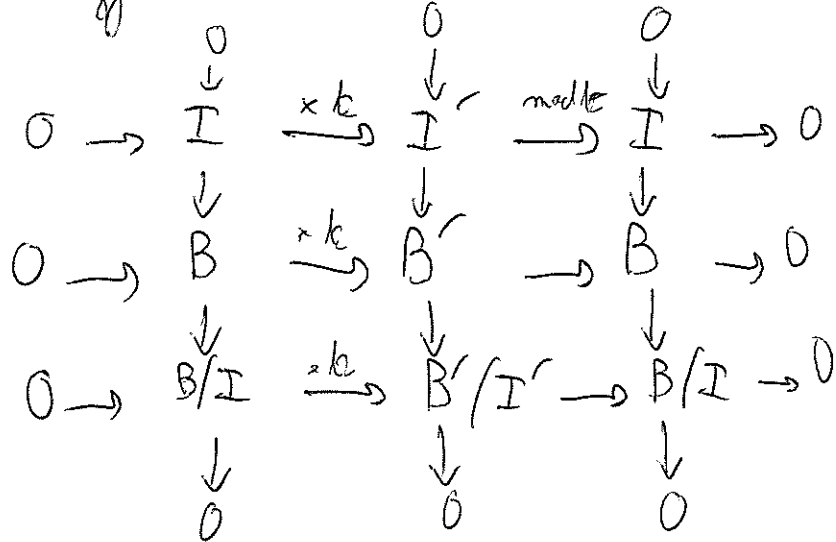 0 0 0
↓ ↓ ↓
0 → I → ×k I′ → mod k I → 0
↓ ↓ ↓
0 → B → ×k B′ → B → 0
↓ ↓ ↓
0 → B/I → ×k B′/I′ → B/I → 0
↓ ↓ ↓
0 0 0